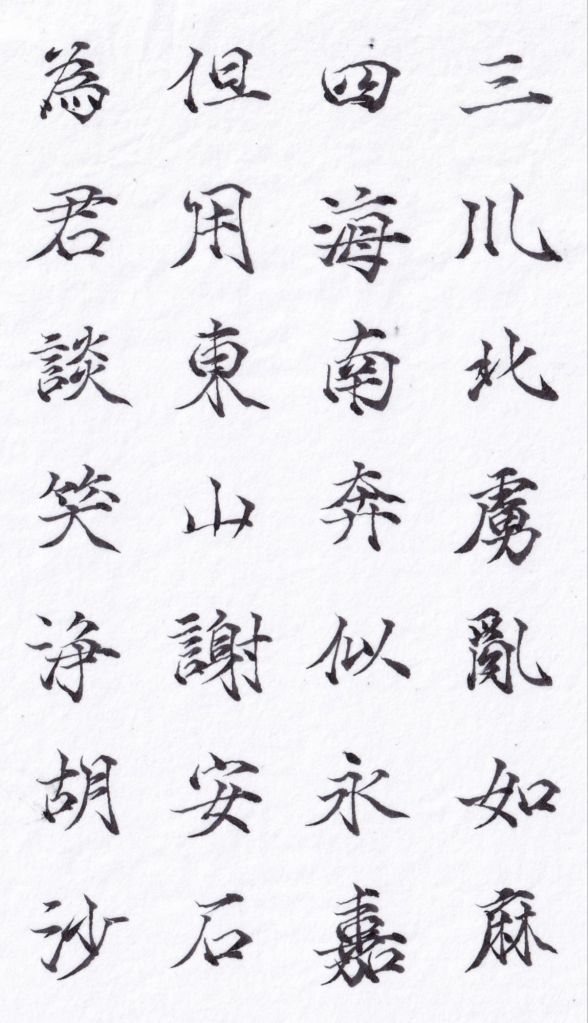 三川北虜亂如麻
四海南奔似永嘉
但用東山謝安石
為君談笑浄胡沙